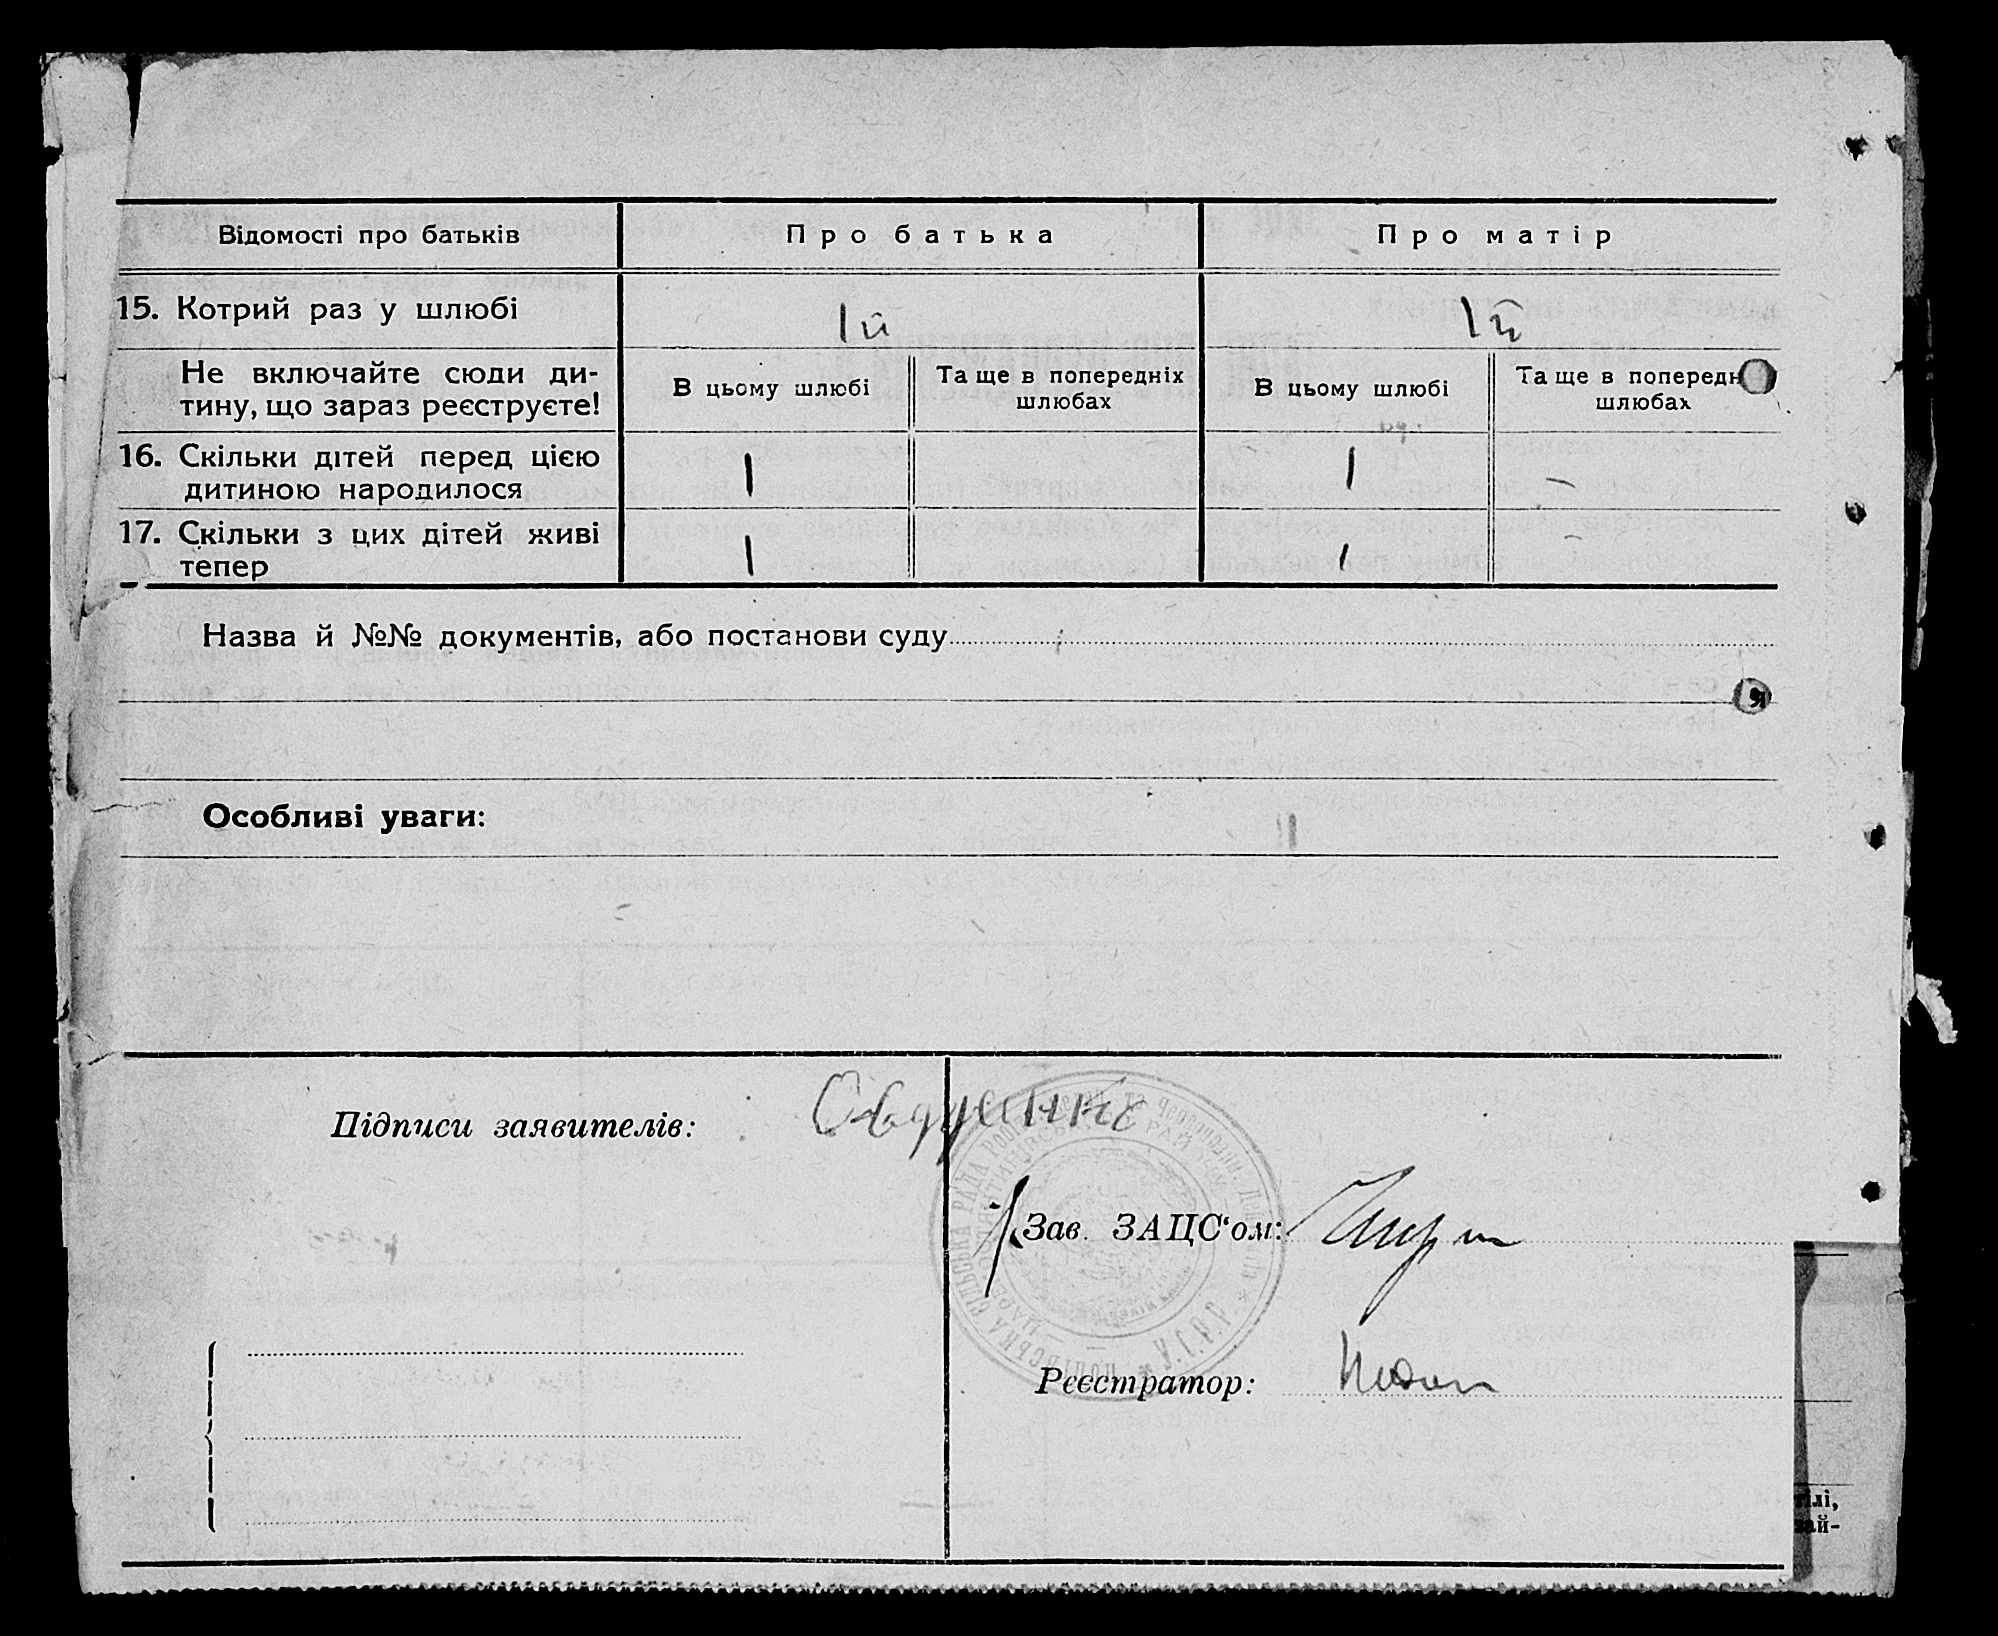 Відомості про батьків Про батька Про матір
15. Котрий раз у шлюбі 1й 1й
Не включайте сюди ди-
тину, що зараз реєструєте!
В цьому шлюбі Та ще в попередніх
шлюбах
В цьому шлюбі Та ще в попередн
шлюбах
16. Скільки дітей перед цією
дитиною народилося 1 1 -
17. Скільки з цих дітей живі
тепер 1 1 -
Назва й №№ документів, або постанови суду
Особливі уваги:
Підписи заявителів:
Зав. ЗАЦС‘ом:
Реєстратор:
СІЛЬСЬКА РАДА
ілі,
зай-